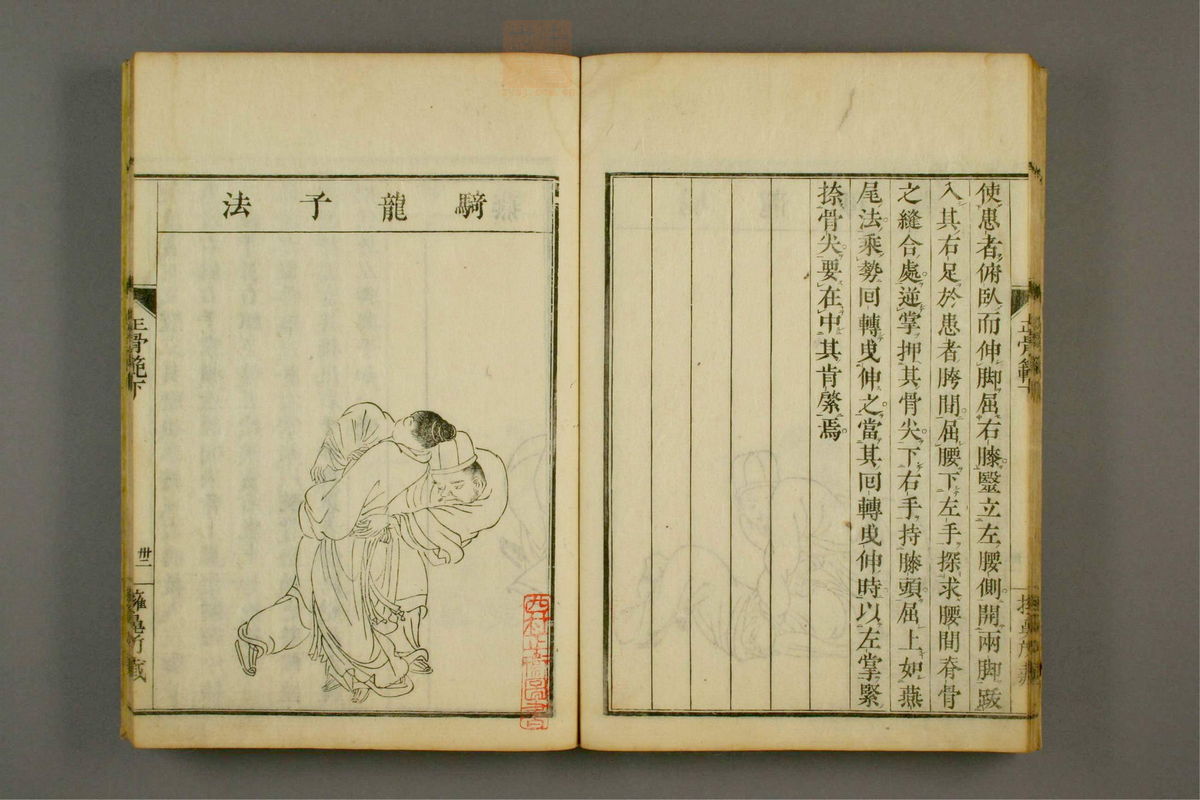 使患者俯臥而伸脚屈右膝豎立左腰側開兩脚跋
入其右足於患者胯間屈腰下左手探求腰間脊骨
之縫合處逆掌押其骨尖下右手持膝頭屈上如燕
尾法乘勢回轉曳伸之當其回轉曳伸時以左掌緊
捺骨尖要在中其肯綮焉
正骨範下
騎龍子法
正骨範下
卅二
擁鼻所藏